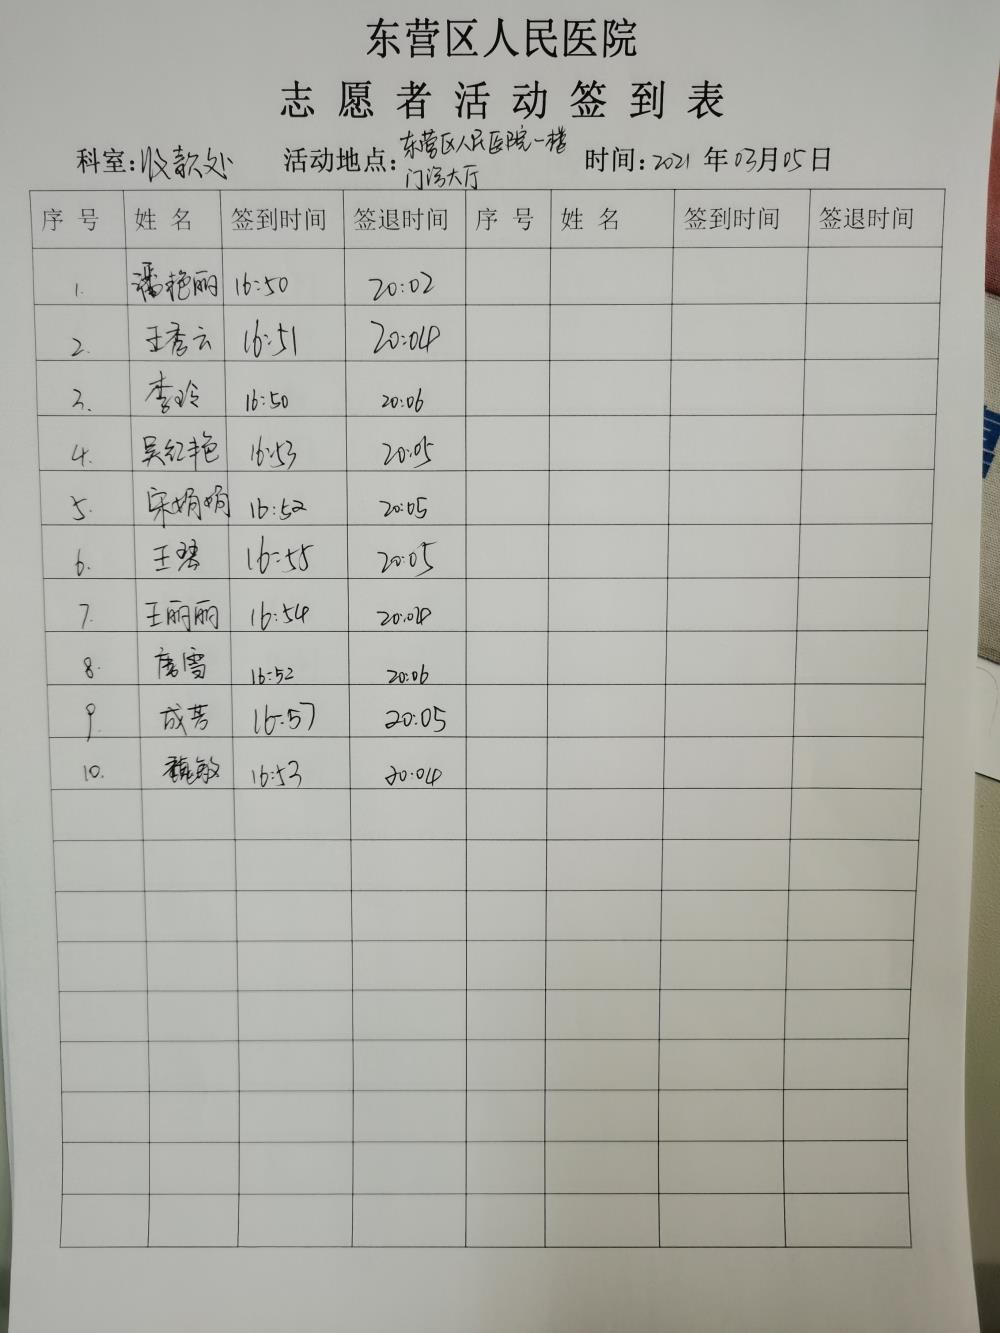 东营区人民医院
志愿者活动签到表
科室:收款处 活动地点:东营区人民医院一楼门诊大厅 时间:2021年03月05日
序号 姓名 签到时间 签退时间 序号 姓名 签到时间 签退时间
1. 潘艳丽 16:50 20:02
2. 王秀云 16:51 20:04
3. 李玲 16:50 20:06
4. 吴红艳 16:53 20:05
5. 宋娟娟 16:52 20:05
6. 王 16:55 20:05
7. 王丽丽 16:54 20:04
8. 唐雪 16:52 20:06
9. 成芳 16:57 20:05
10. 魏敏 16:53 20:04